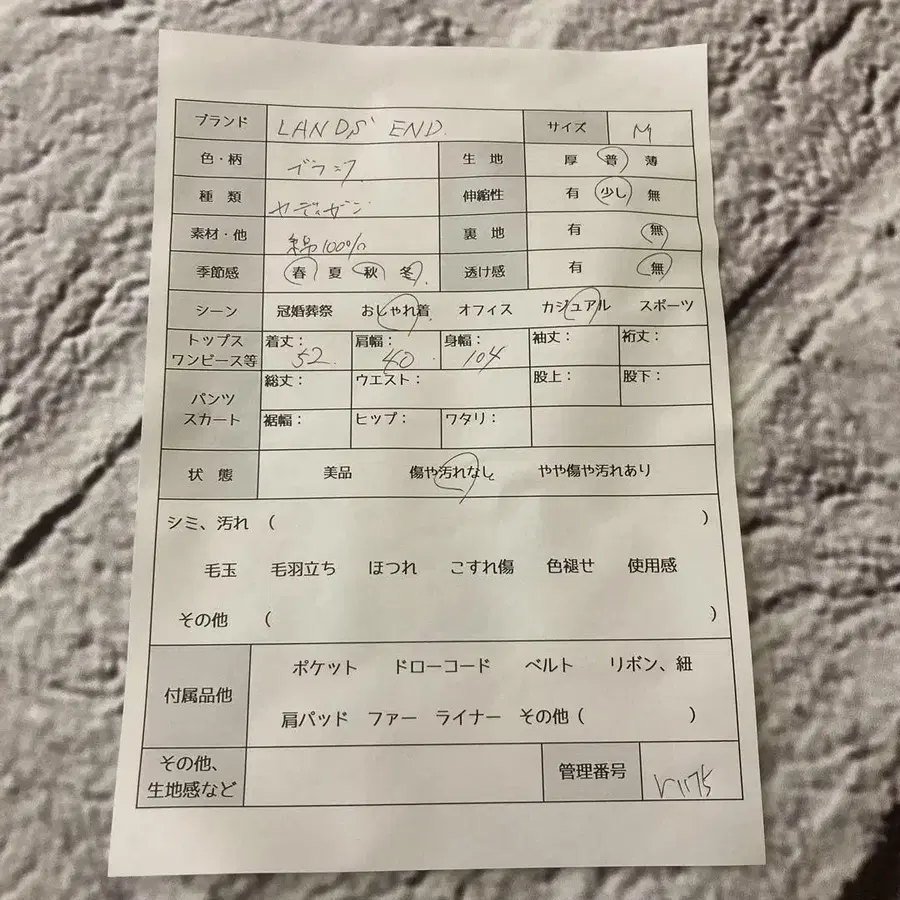 ブランド LANDS' END. サイズ M
色・柄 ブラック 生 地 厚 普 薄
種 類 カーディガン 伸縮性 有 少し 無
素材・他 綿100% 裏 地 有 無
季節感 春 夏 秋 冬 透け感 有 無
シーン 冠婚葬祭 おしゃれ着 オフィス カジュアル スポーツ
トップス ワンピース等 着丈： 52 肩幅： 40 身幅： 104 袖丈： 裄丈：
パンツ スカート 総丈： ウエスト： 股上： 股下：
裾幅： ヒップ： ワタリ：
状 態 美品 傷や汚れなし やや傷や汚れあり
シミ、汚れ （ ）
毛玉 毛羽立ち ほつれ こすれ傷 色褪せ 使用感
その他 （ ）
付属品他 ポケット ドローコード ベルト リボン、紐
肩パッド ファー ライナー その他（ ）
その他、
生地感など 管理番号 r1175